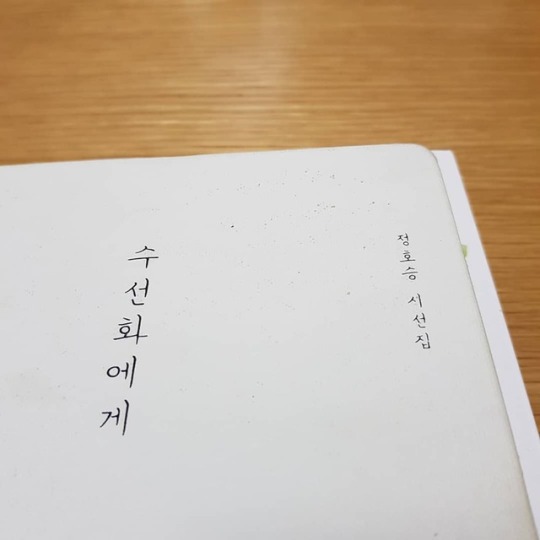 수선화에게
정호승 시선집